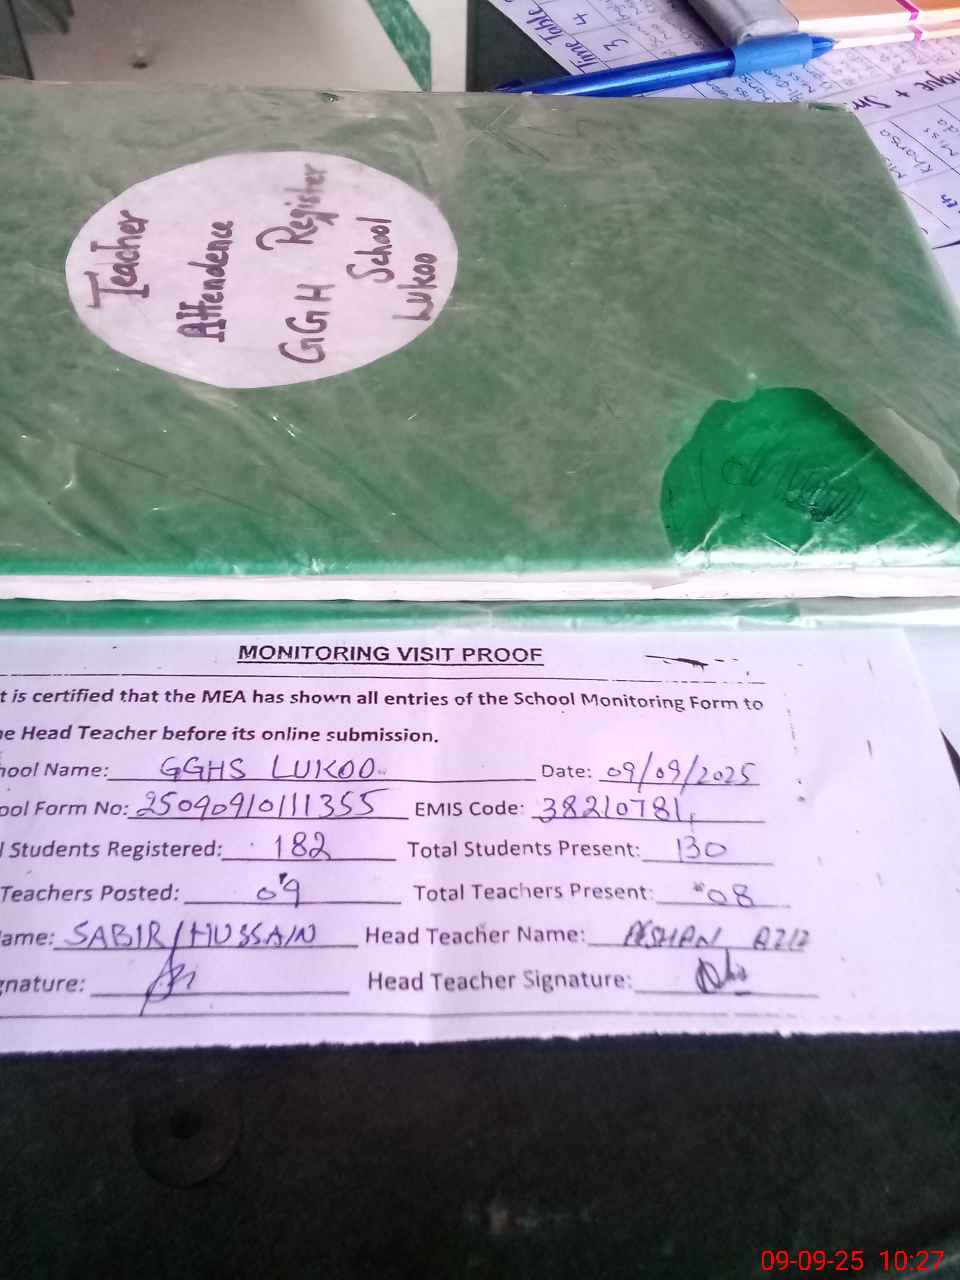 Time Table
3 4
Teacher
Attendence
GGH Register
School
Lukoo
MONITORING VISIT PROOF
t is certified that the MEA has shown all entries of the School Monitoring Form to
e Head Teacher before its online submission.
hool Name: GGHS LUKOO Date: 09/09/2025
ool Form No: 25090910111355 EMIS Code: 38210781
l Students Registered: 182 Total Students Present: 130
Teachers Posted: 09 Total Teachers Present: 08
ame: SABIR HUSSAIN Head Teacher Name: AFSHAN AZIZ
gnature: Head Teacher Signature:
09-09-25 10:27